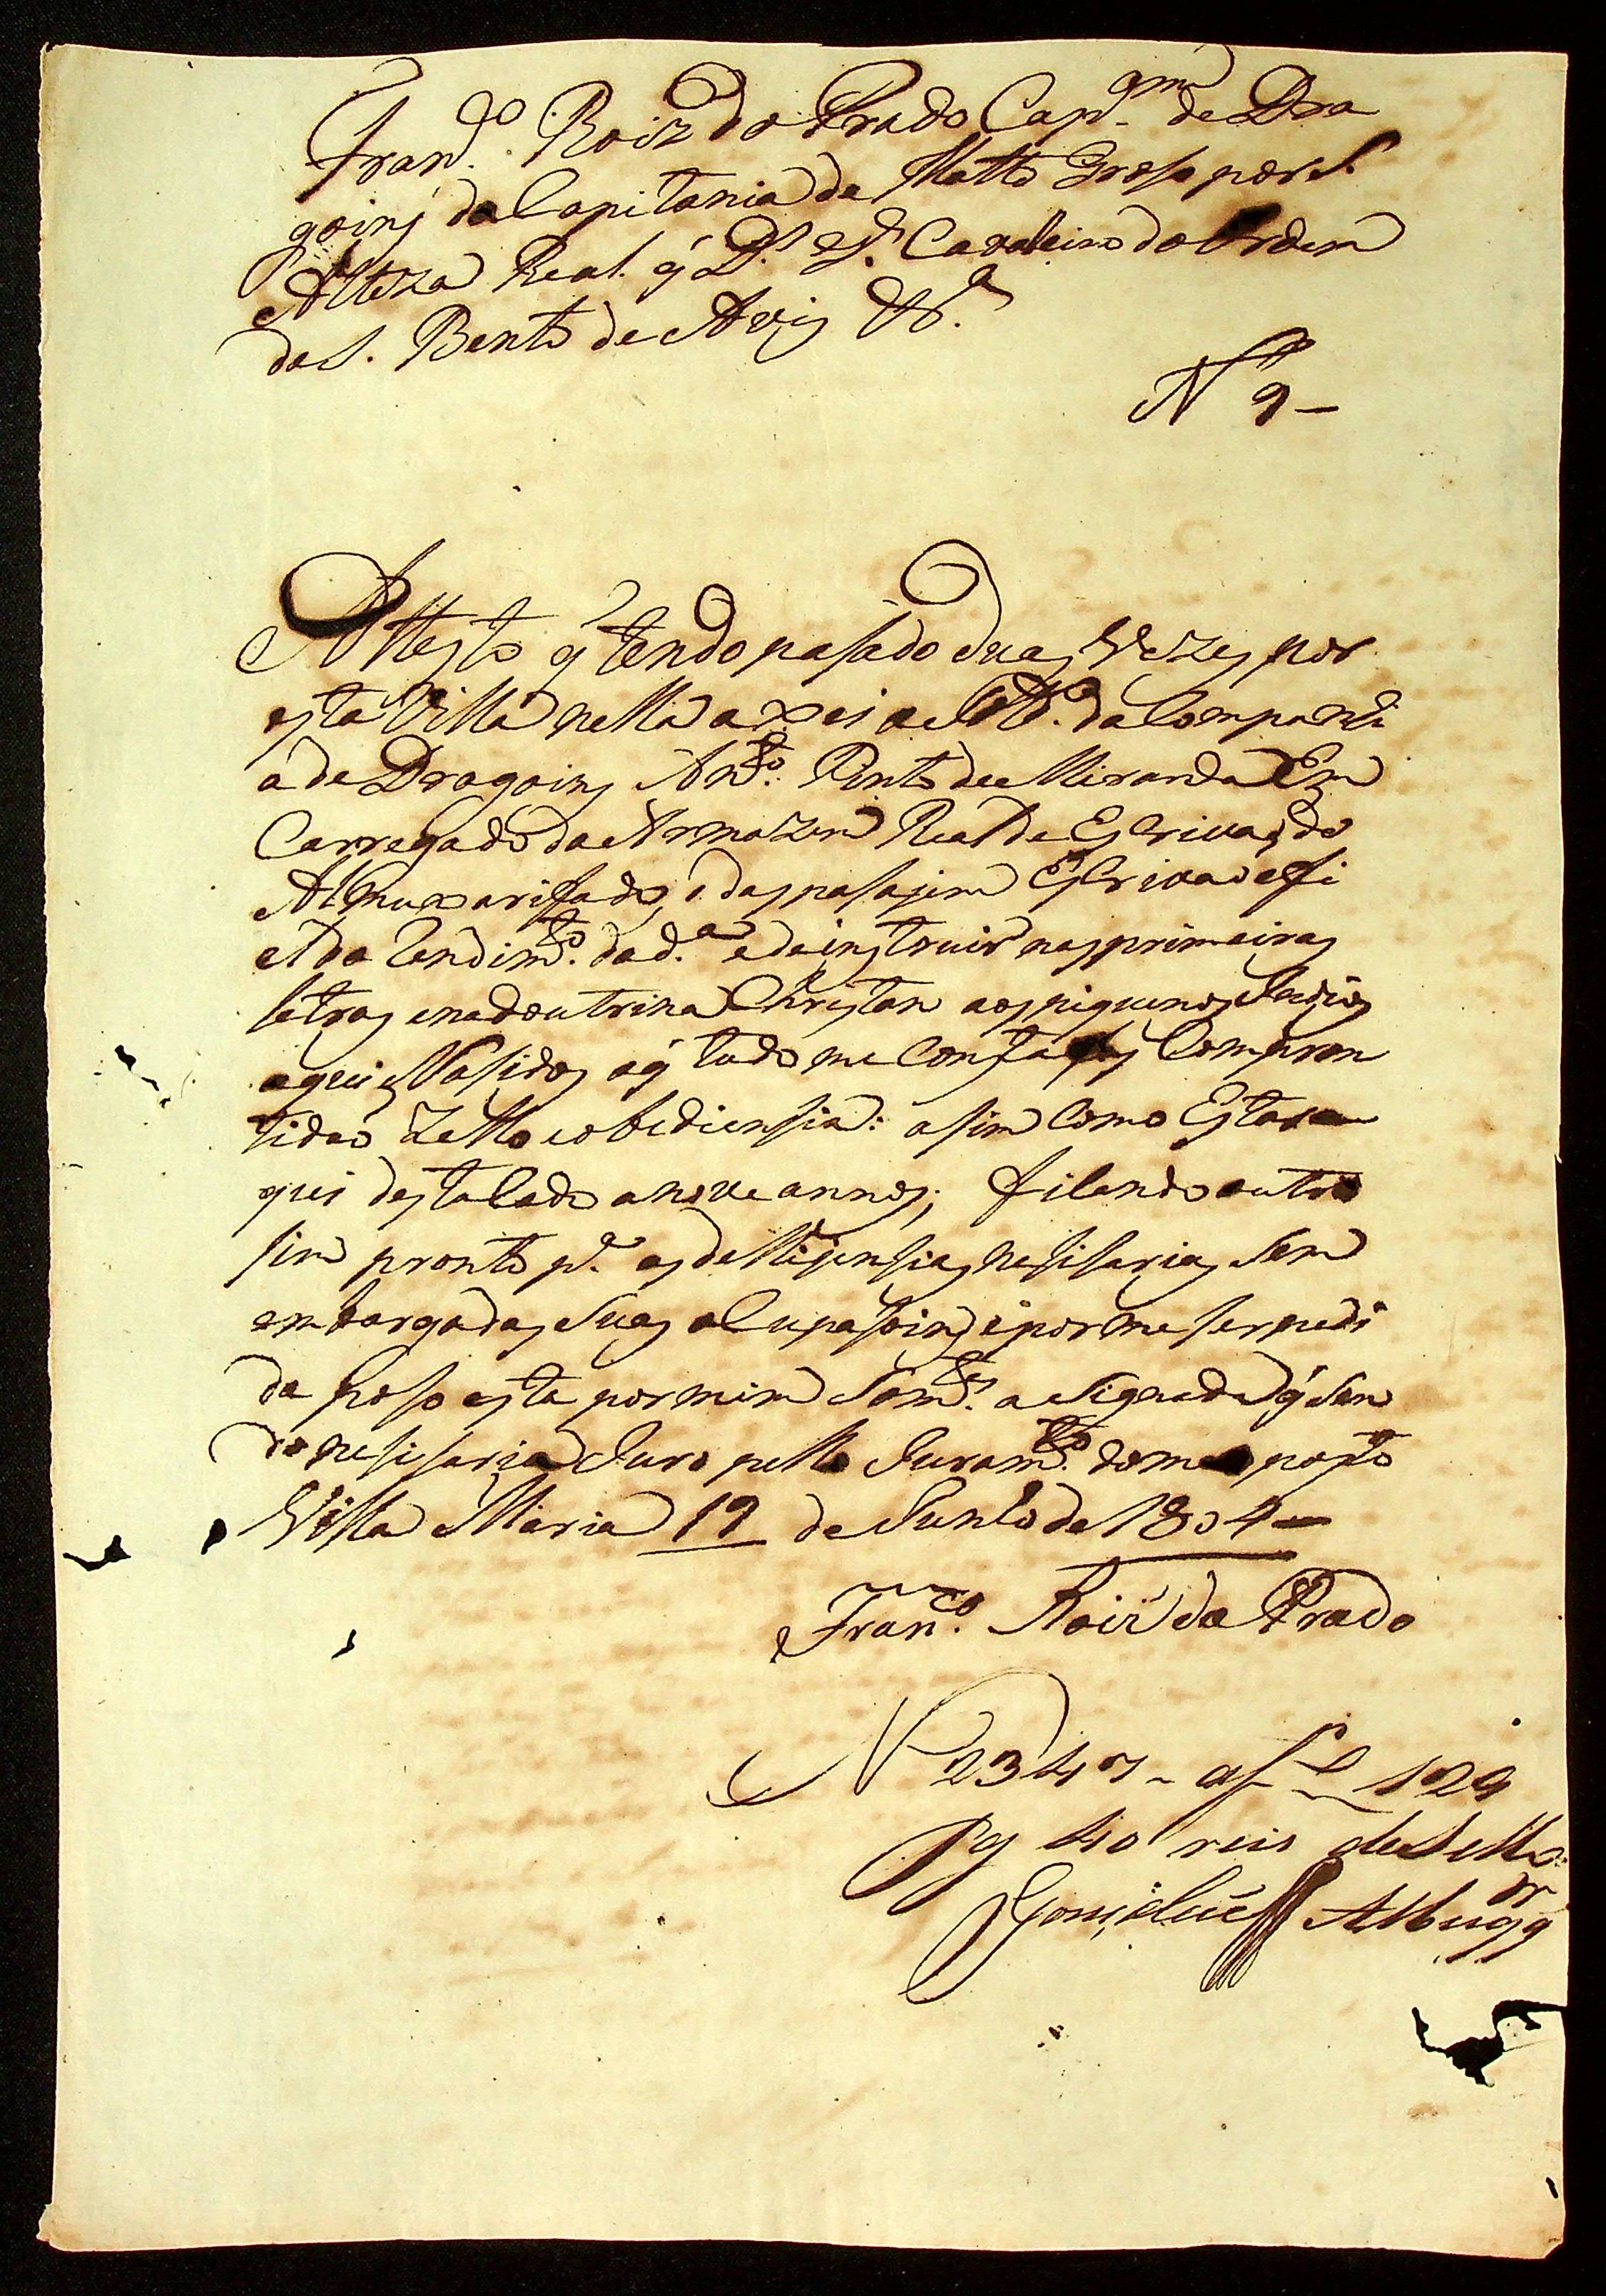 Fran.co Roiz do Prado Cap.am de Dra
goins da Capitania de Matto Groso por S.
Alteza Real q̃ D.s g.e Cavaleiro da Ordem
de S. Bento de Avis &.a
N 9 —
Attesto q̃ tendo pasado duas Vezes por
esta Villa nella axei a o Sold.o da Companhi
a de Dragoins An.to Pinto de Miranda En
Carregado do Armazem Real de Escrivaõ do
Almuxarifado, e das pasajem Escrivaõ
do Rendim.to da d.a e de instruir nas primeiras
letras e na doutrina Christan aos piquenos Indios
aqui Nasidos oq̃ tudo me Consta Com pron
tidaõ Zello eobediensia: asim Como Estar a
qui destacado a nove annos; ficando outro
sim pronto p.a as dellijensias nesisarias Sem
embargo das Suas ocupasoins e por me ser pedi
da paso esta por mim Som.te asignada q̃ Sen
do nesisaria Juro pello Juram.to do meo posto
Villa Maria 19 de Junho de 1804 —
Fran.co Roiz do Prado
N 2347 - a f 129
Pg 40 reis de Sello